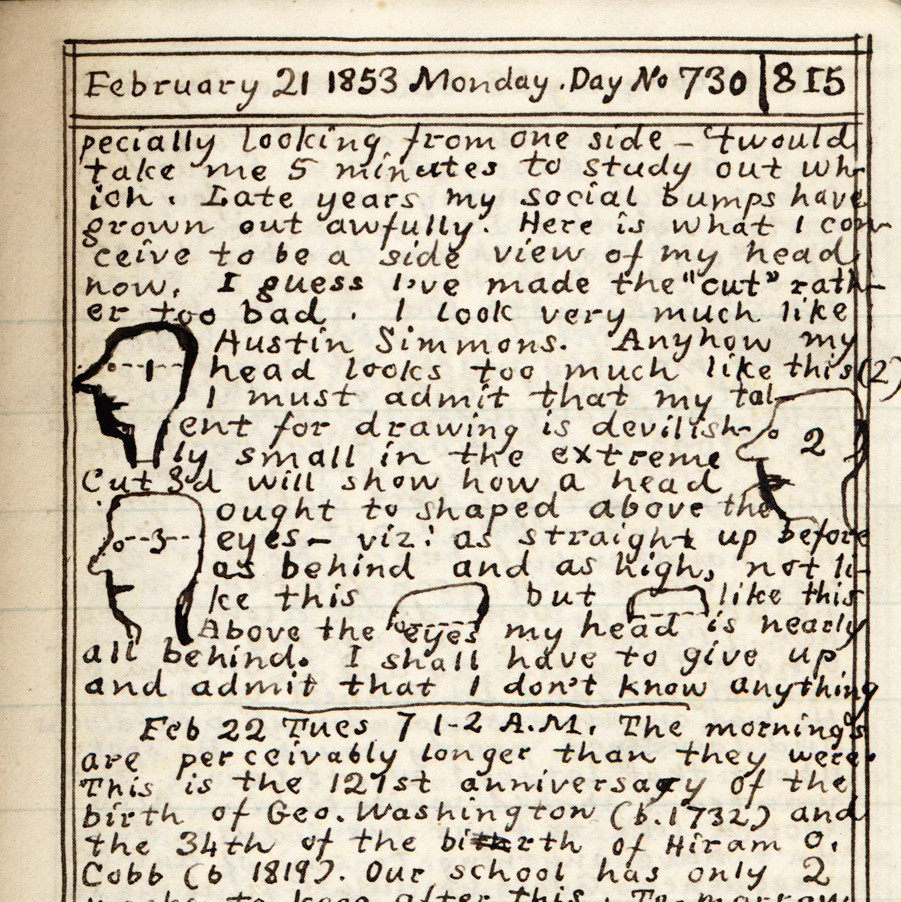 February 21 1853 Monday. Day No 730 | 815
pecially looking from one side – 'twould
take me 5 minutes to study out wh-
ich. Late years my social bumps have
grown out awfully. Here is what I con-
ceive to be a side view of my head
now. I guess I've made the "cut" rath-
er too bad. I look very much like
Austin Simmons. Anyhow my
head looks too much like this (2)
I must admit that my tal-
ent for drawing is devilish-
ly small in the extreme
Cut 3d will show how a head
ought to shaped above the
eyes – viz: as straight up before
as behind and as high, not li-
ke this but like this
Above the eyes my head is nearly
all behind. I shall have to give up
and admit that I don't know anything
Feb 22 Tues 7 1-2 A.M. The morning's
are perceivably longer than they were.
This is the 121st anniversary of the
birth of Geo. Washington (b. 1732) and
the 34th of the birth of Hiram O.
Cobb (b 1819). Our school has only 2
weeks to keep after this. To-morrow
1
2
3